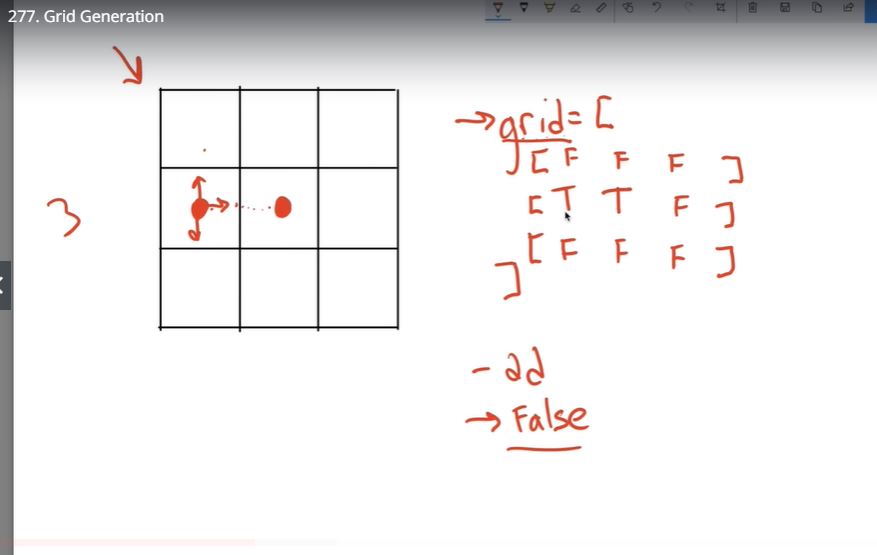 277. Grid Generation
3
→ grid = [
[ F F F ]
[ T T F ]
[ F F F ]
]
- 2d
→ False